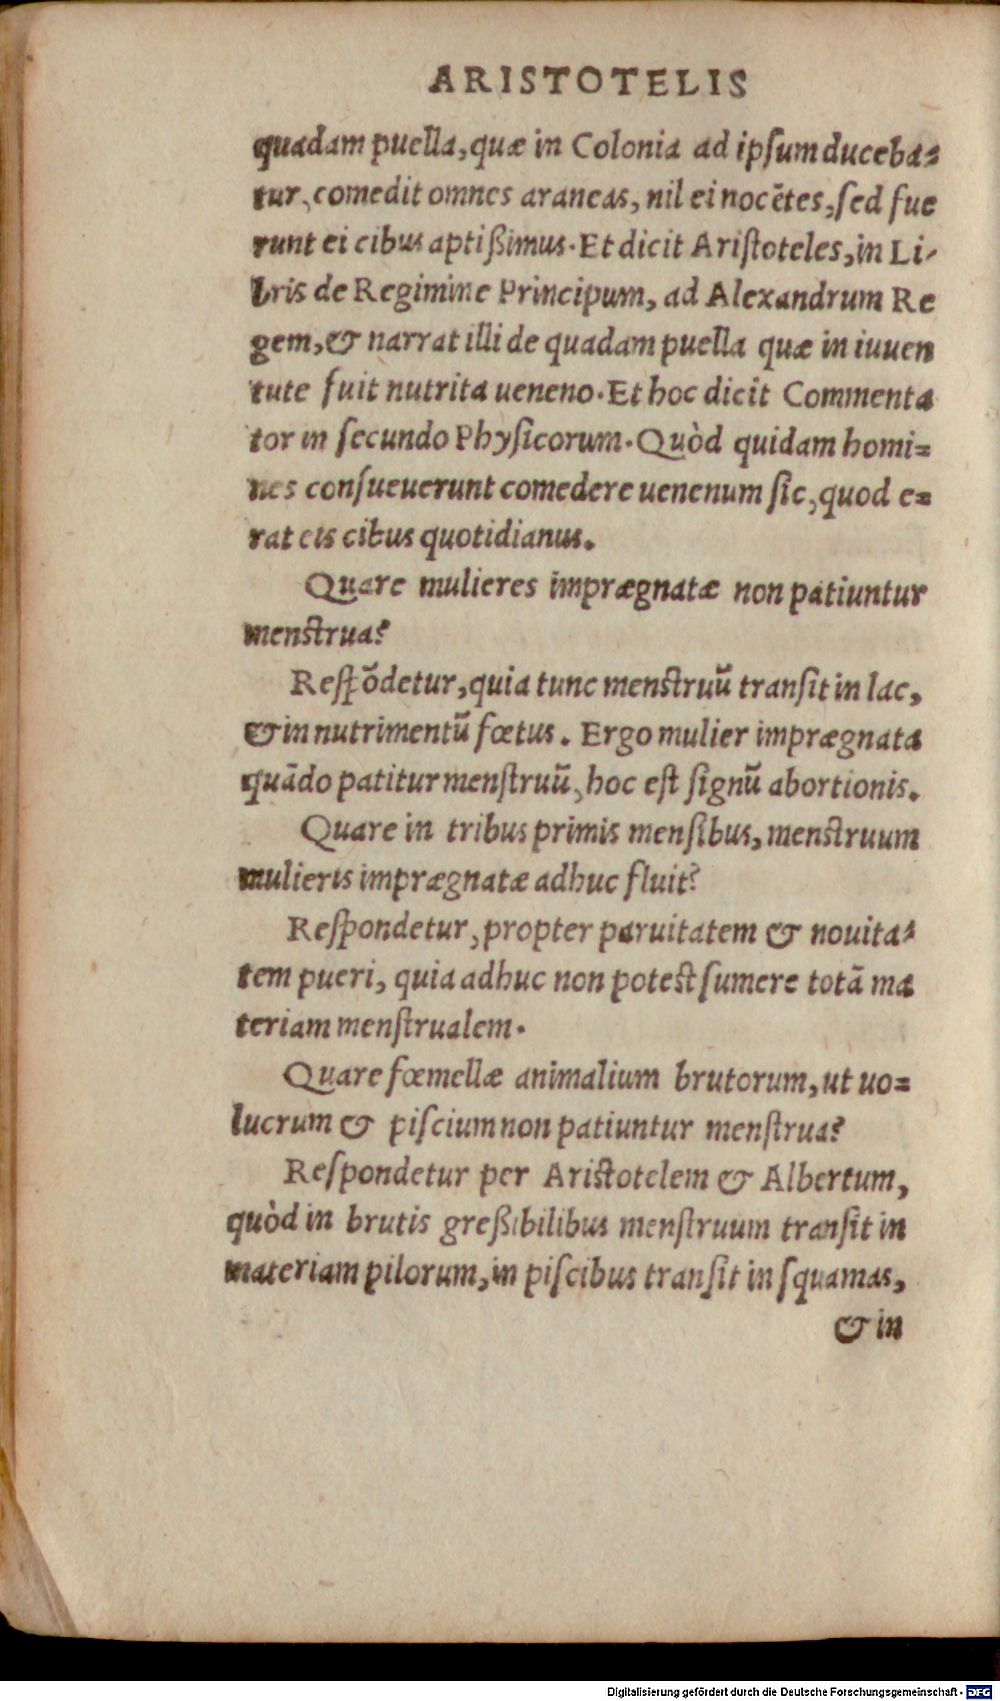 ARISTOTELIS
quadam puella, quæ in Colonia ad ipſum duceba-
tur, comedit omnes araneas, nil ei nocẽtes, ſed fue
runt ei cibus aptißimus. Et dicit Ariſtoteles, in Li-
bris de Regimine Principum, ad Alexandrum Re
gem, & narrat illi de quadam puella quæ in iuuen
tute fuit nutrita ueneno. Et hoc dicit Commenta
tor in ſecundo Phyſicorum. Quòd quidam homi=
nes conſueuerunt comedere uenenum ſic, quod e=
rat eis cibus quotidianus.
Quare mulieres imprægnatæ non patiuntur
menstrua?
Reſpõdetur, quia tunc menstruũ tranſit in lac,
& in nutrimentũ fœtus. Ergo mulier imprægnata
quãdo patitur menſtruũ, hoc eſt ſignũ abortionis.
Quare in tribus primis menſibus, menstruum
mulieris imprægnatæ adhuc fluit?
Reſpondetur, propter paruitatem & nouita-
tem pueri, quia adhuc non potest ſumere totã ma
teriam menſtrualem.
Quare fœmellæ animalium brutorum, ut uo=
lucrum & piſcium non patiuntur menſtrua?
Reſpondetur per Aristotelem & Albertum,
quòd in brutis greßibilibus menſtruum tranſit in
materiam pilorum, in piſcibus tranſit in ſquamas,
& in
Digitalisierung gefördert durch die Deutsche Forschungsgemeinschaft - DFG